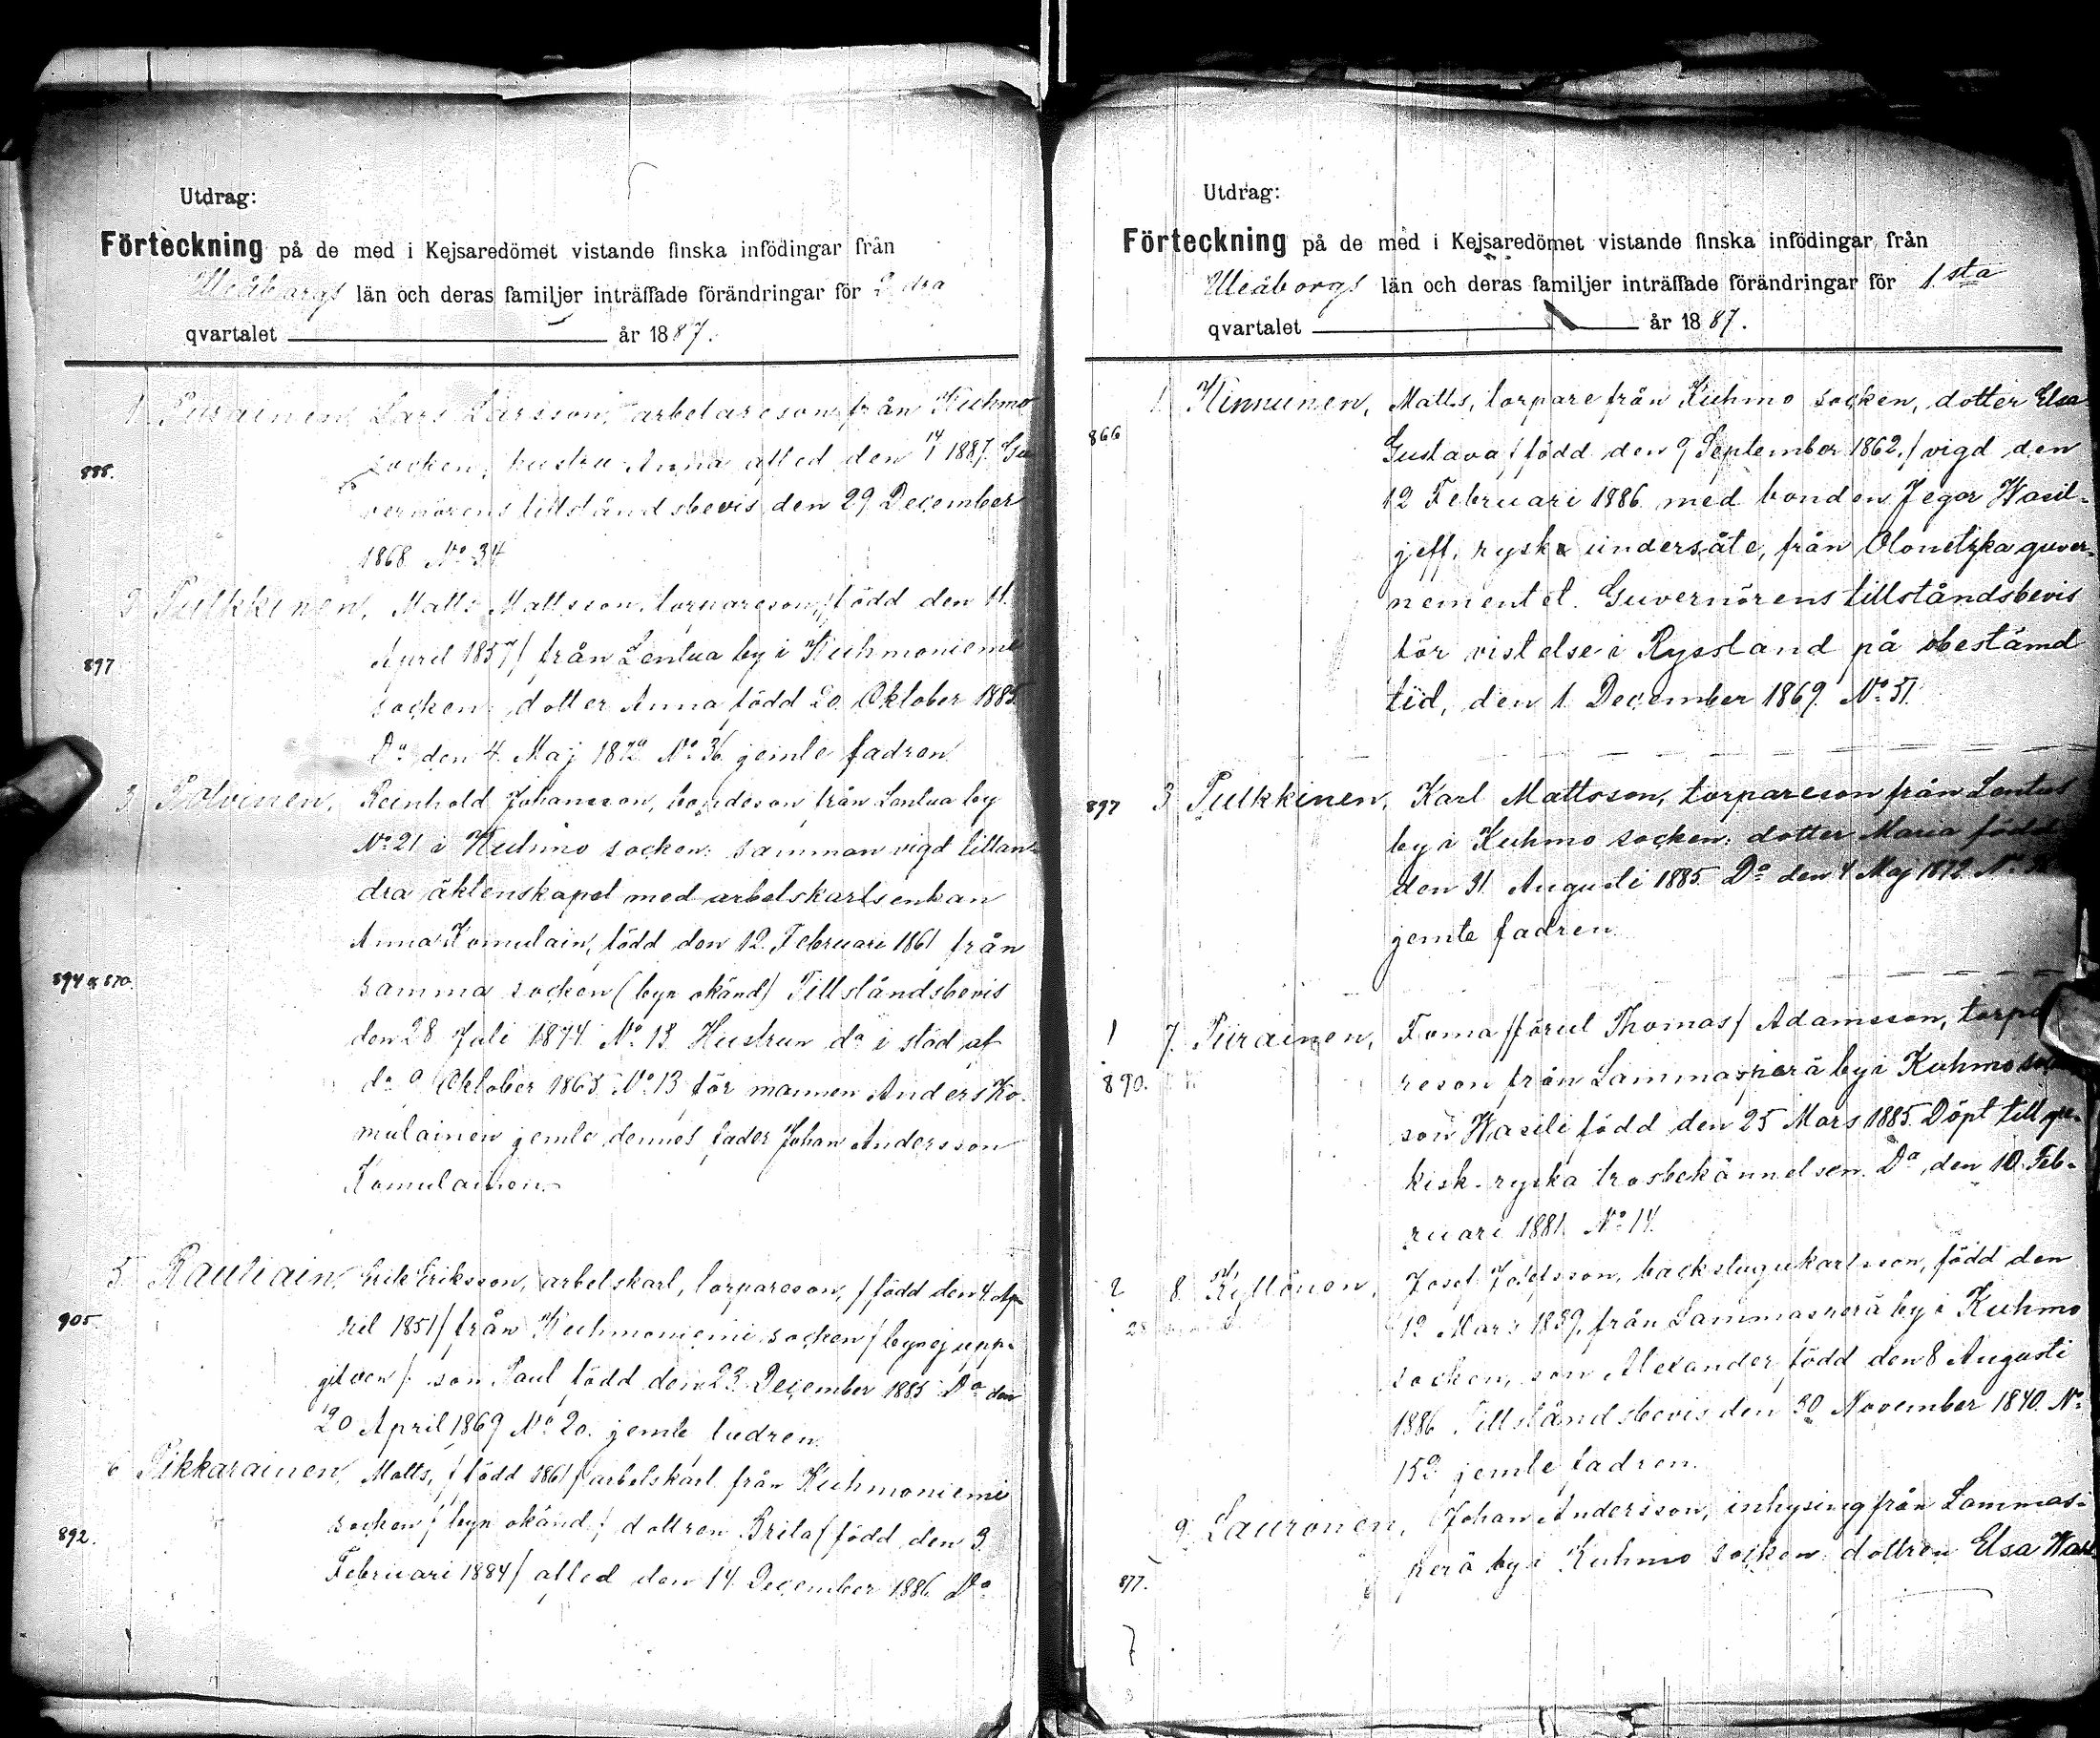 Utdrag:
Förteckning på de med i Kejsaredömet vistande finska infödingar från
Uleåborgs län och deras familjer inträffade förändringar för 2 dra
qvartalet år 1887.
1. Piirainen, Lars Larsson, arbetareson från Kuhmo
888.
socken, hustru Anna afled den 14/1 1887. Gu
vernörens tillståndsbevis den 29 December
1868 No 34
2 Pulkkinen, Matts Mattsson, torpareson, född den 11.
April 1857/ från Lentua by i Kuhmoniemi
897
socken: dotter Anna född 20 Oktober 1885
Do den 4. Maj 1872 No 36 jemte fadren
3. Polvinen, Reinhold Johansson, bondeson från Lentua by
No 21 i Kuhmo socken: samman vigd till an-
dra äktenskapet med arbetskarlsenkan
Anna Komulain, född den 12. Februari 1861 från
894 & 870.
samma socken (byn okänd/ Tillståndsbevis
den 28 Juli 1874 No 18. Hustrun do i stöd af
do Oktober 1865 No 13 för mannen Anders Ko-
mulainen jemte dennes fader Johan Andersson
Komulainen.
5. Rautiain, Erik Eriksson, arbetskarl, torpareson, / född den 4. Ap-
905
ril 1851/ från Kuhmoniemi socken / byn ej upp-
gifven /: son Paul född den 23. December 1885 Do den
20 April 1869 No 20. jemte fadren.
6 Pikkarainen, Matts, / född 1861 / arbetskarl från Kuhmoniemi
892.
socken / byn okänd /: dottren Brita / född den 3.
Februari 1884/ afled den 14 December 1886 Do
Utdrag:
Förteckning på de med i Kejsaredömet vistande finska infödingar från
Uleåborgs län och deras familjer inträffade förändringar för 1.sta
qvartalet år 1887.
1. Kinnunen, Matts, torpare från Kuhmo socken, dotter Elsa
866
Gustava / född den 9 September 1862,/ vigd den
12 Februari 1886 med bonden Jegor Wasil-
jeff, ryska undersåte, från Olonetzka guver-
nementet. Guvernörens tillståndsbevis
för vistelse i Ryssland på obestämd
tid, den 1 December 1869. No 51.
897 3 Pulkkinen, Karl Mattsson, torpareson från Lentua
by i Kuhmo socken: dotter Maria född
den 31 Augusti 1885 Do den 4 Maj 1872 No
jemte fadren.
1 7. Piirainen, Foma / förut Thomas/ Adamsson, torpa
890.
reson från Lammasperä by i Kuhmo
son Wasili född den 25 Mars 1885. Döpt till gre-
kisk-ryska trosbekännelsen. Do, den 10. Feb-
ruari 1881. No 14.
2 8. Kyllönen, Josef Josefsson, backstugukarlsson, född den
Mars 1859, från Lammasperä by i Kuhmo
socken, son Alexander, född den 8 Augusti
1886. Tillståndsbevis den 30 November 1840. No
152 jemte fadren.
9. Lauronen, Johan Andersson, inhysing från Lammas-
877.
perä by i Kuhmo socken: dottren Elsa
7